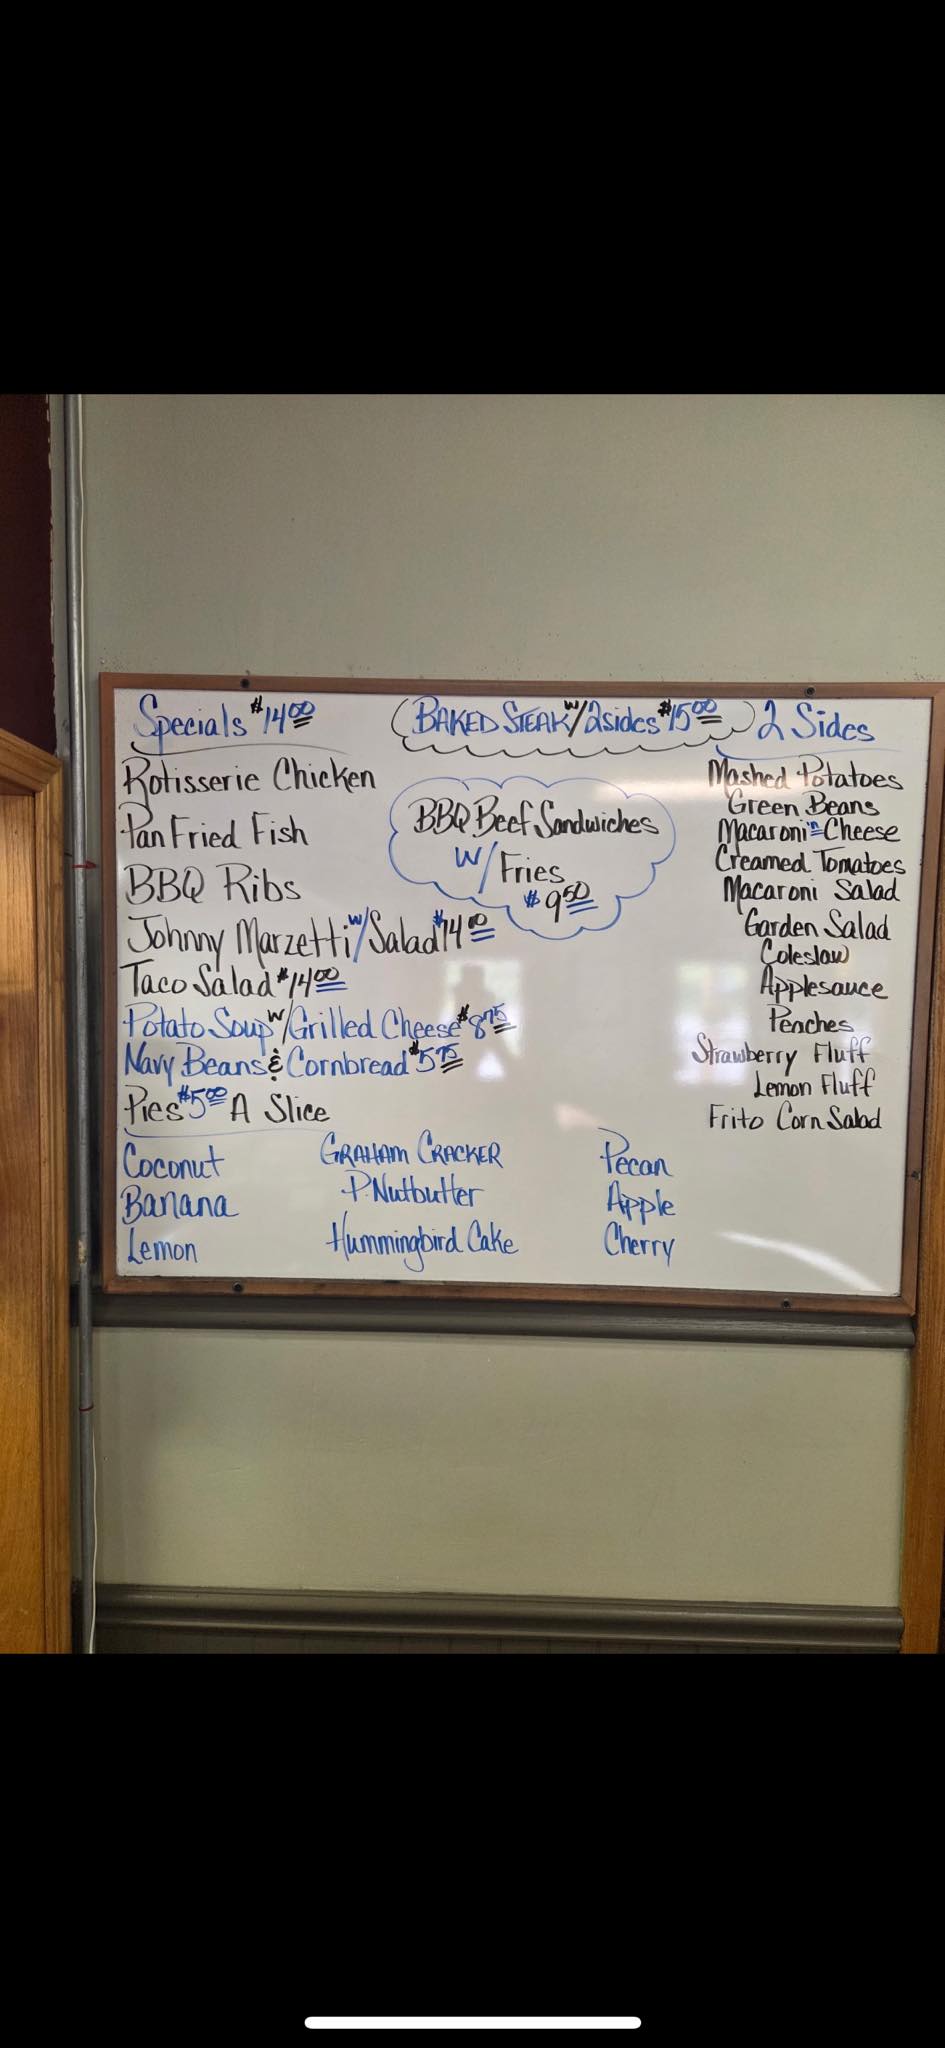 Specials $14.00
Rotisserie Chicken
Pan Fried Fish
BBQ Ribs
Johnny Marzetti w/Salad $14.00
Taco Salad $14.00
Potato Soup w/Grilled Cheese $8.75
Navy Beans & Cornbread $5.75
Pies $5.00 A Slice
Coconut
Banana
Lemon
GRAHAM CRACKER
P.Nutbutter
Hummingbird Cake
Pecan
Apple
Cherry
BAKED STEAK w/2sides $15.00
BBQ Beef Sandwiches
w/Fries
$9.50
2 Sides
Mashed Potatoes
Green Beans
Macaroni 'n Cheese
Creamed Tomatoes
Macaroni Salad
Garden Salad
Coleslaw
Applesauce
Peaches
Strawberry Fluff
Lemon Fluff
Frito Corn Salad